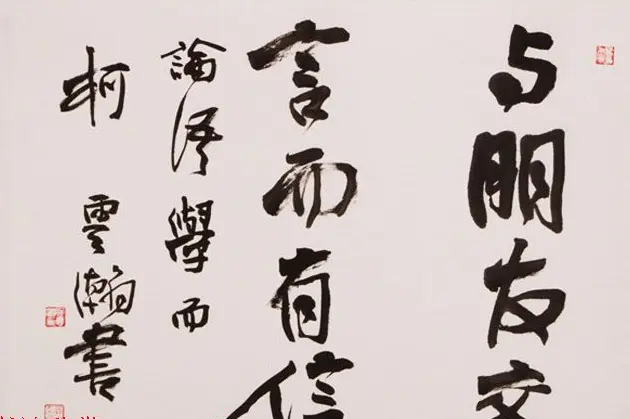 与朋友交
言而有信
論語學而
柯雲瀚書